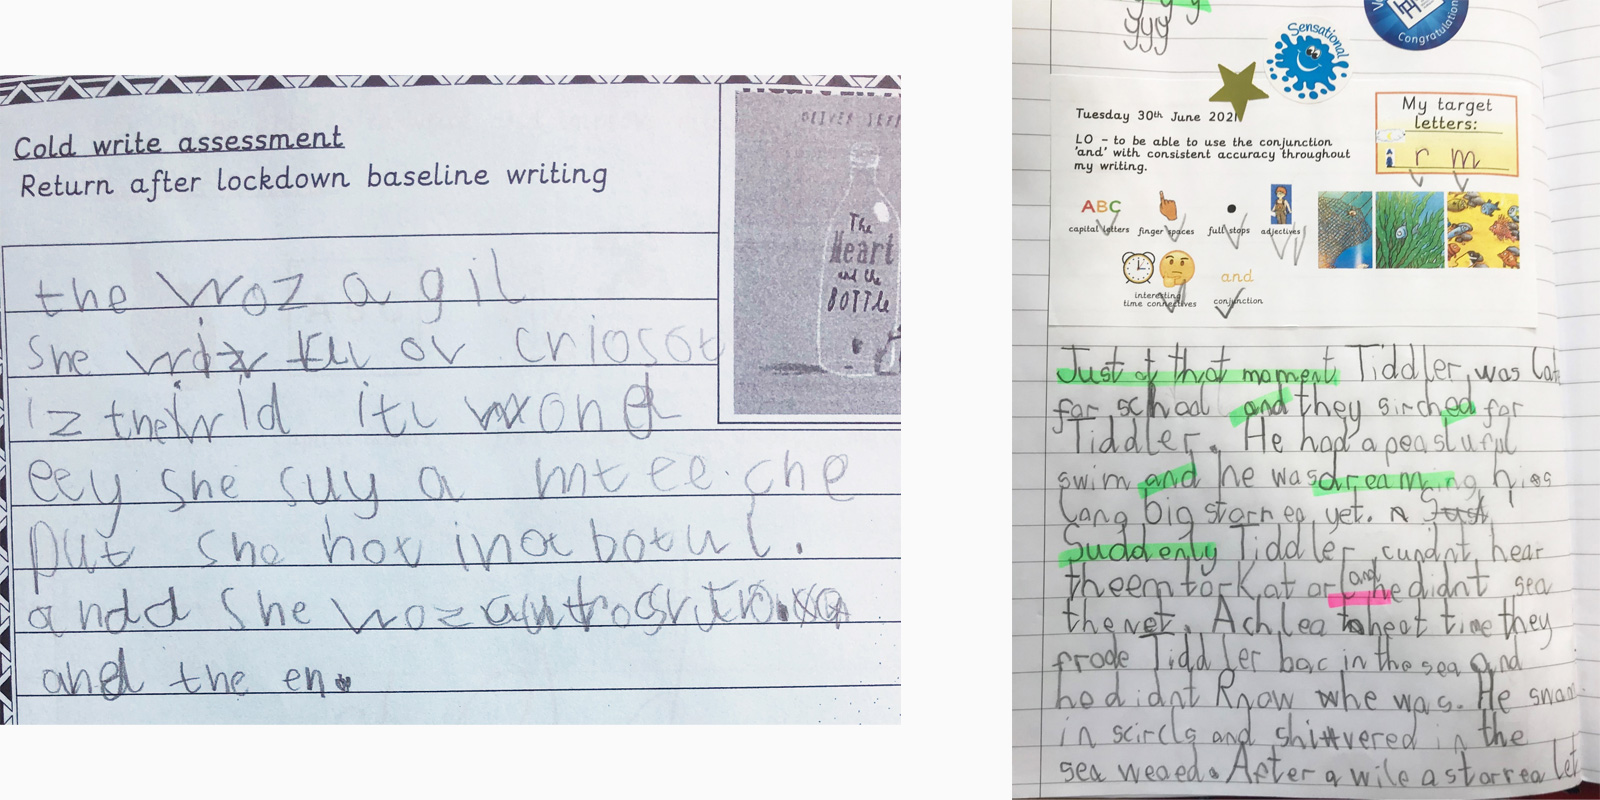 Cold write assessment
Return after lockdown baseline writing
OLIVER
The
Heart
and the
BOTTLe
the woz a gil
She ov criosot
iz the wid its wond
eey she suy a mtee. che
put she hot in a botul.
andd She woz
and the en.
yyy
Sensational
Congratulation
Tuesday 30th June 2021
LO - to be able to use the conjunction
'and' with consistent accuracy throughout
my writing.
My target
letters:
r m
ABC
capital letters finger spaces full stops adjectives
interesting
time connectives
and
conjunction
Just at that moment Tiddler, was lat
for school and they sirched for
Tiddler. He had a peasluful
swim and he was dreaming hies
Long big storrey, yet. Just
Suddenly Tiddler cundnt hear
theem torkat or and he didnt sea
the net. At time they
frode Tiddler bac in the sea and
he didnt know whe was. He swam
in scircls and shivered in the
sea weaed. After a wile a storrea let